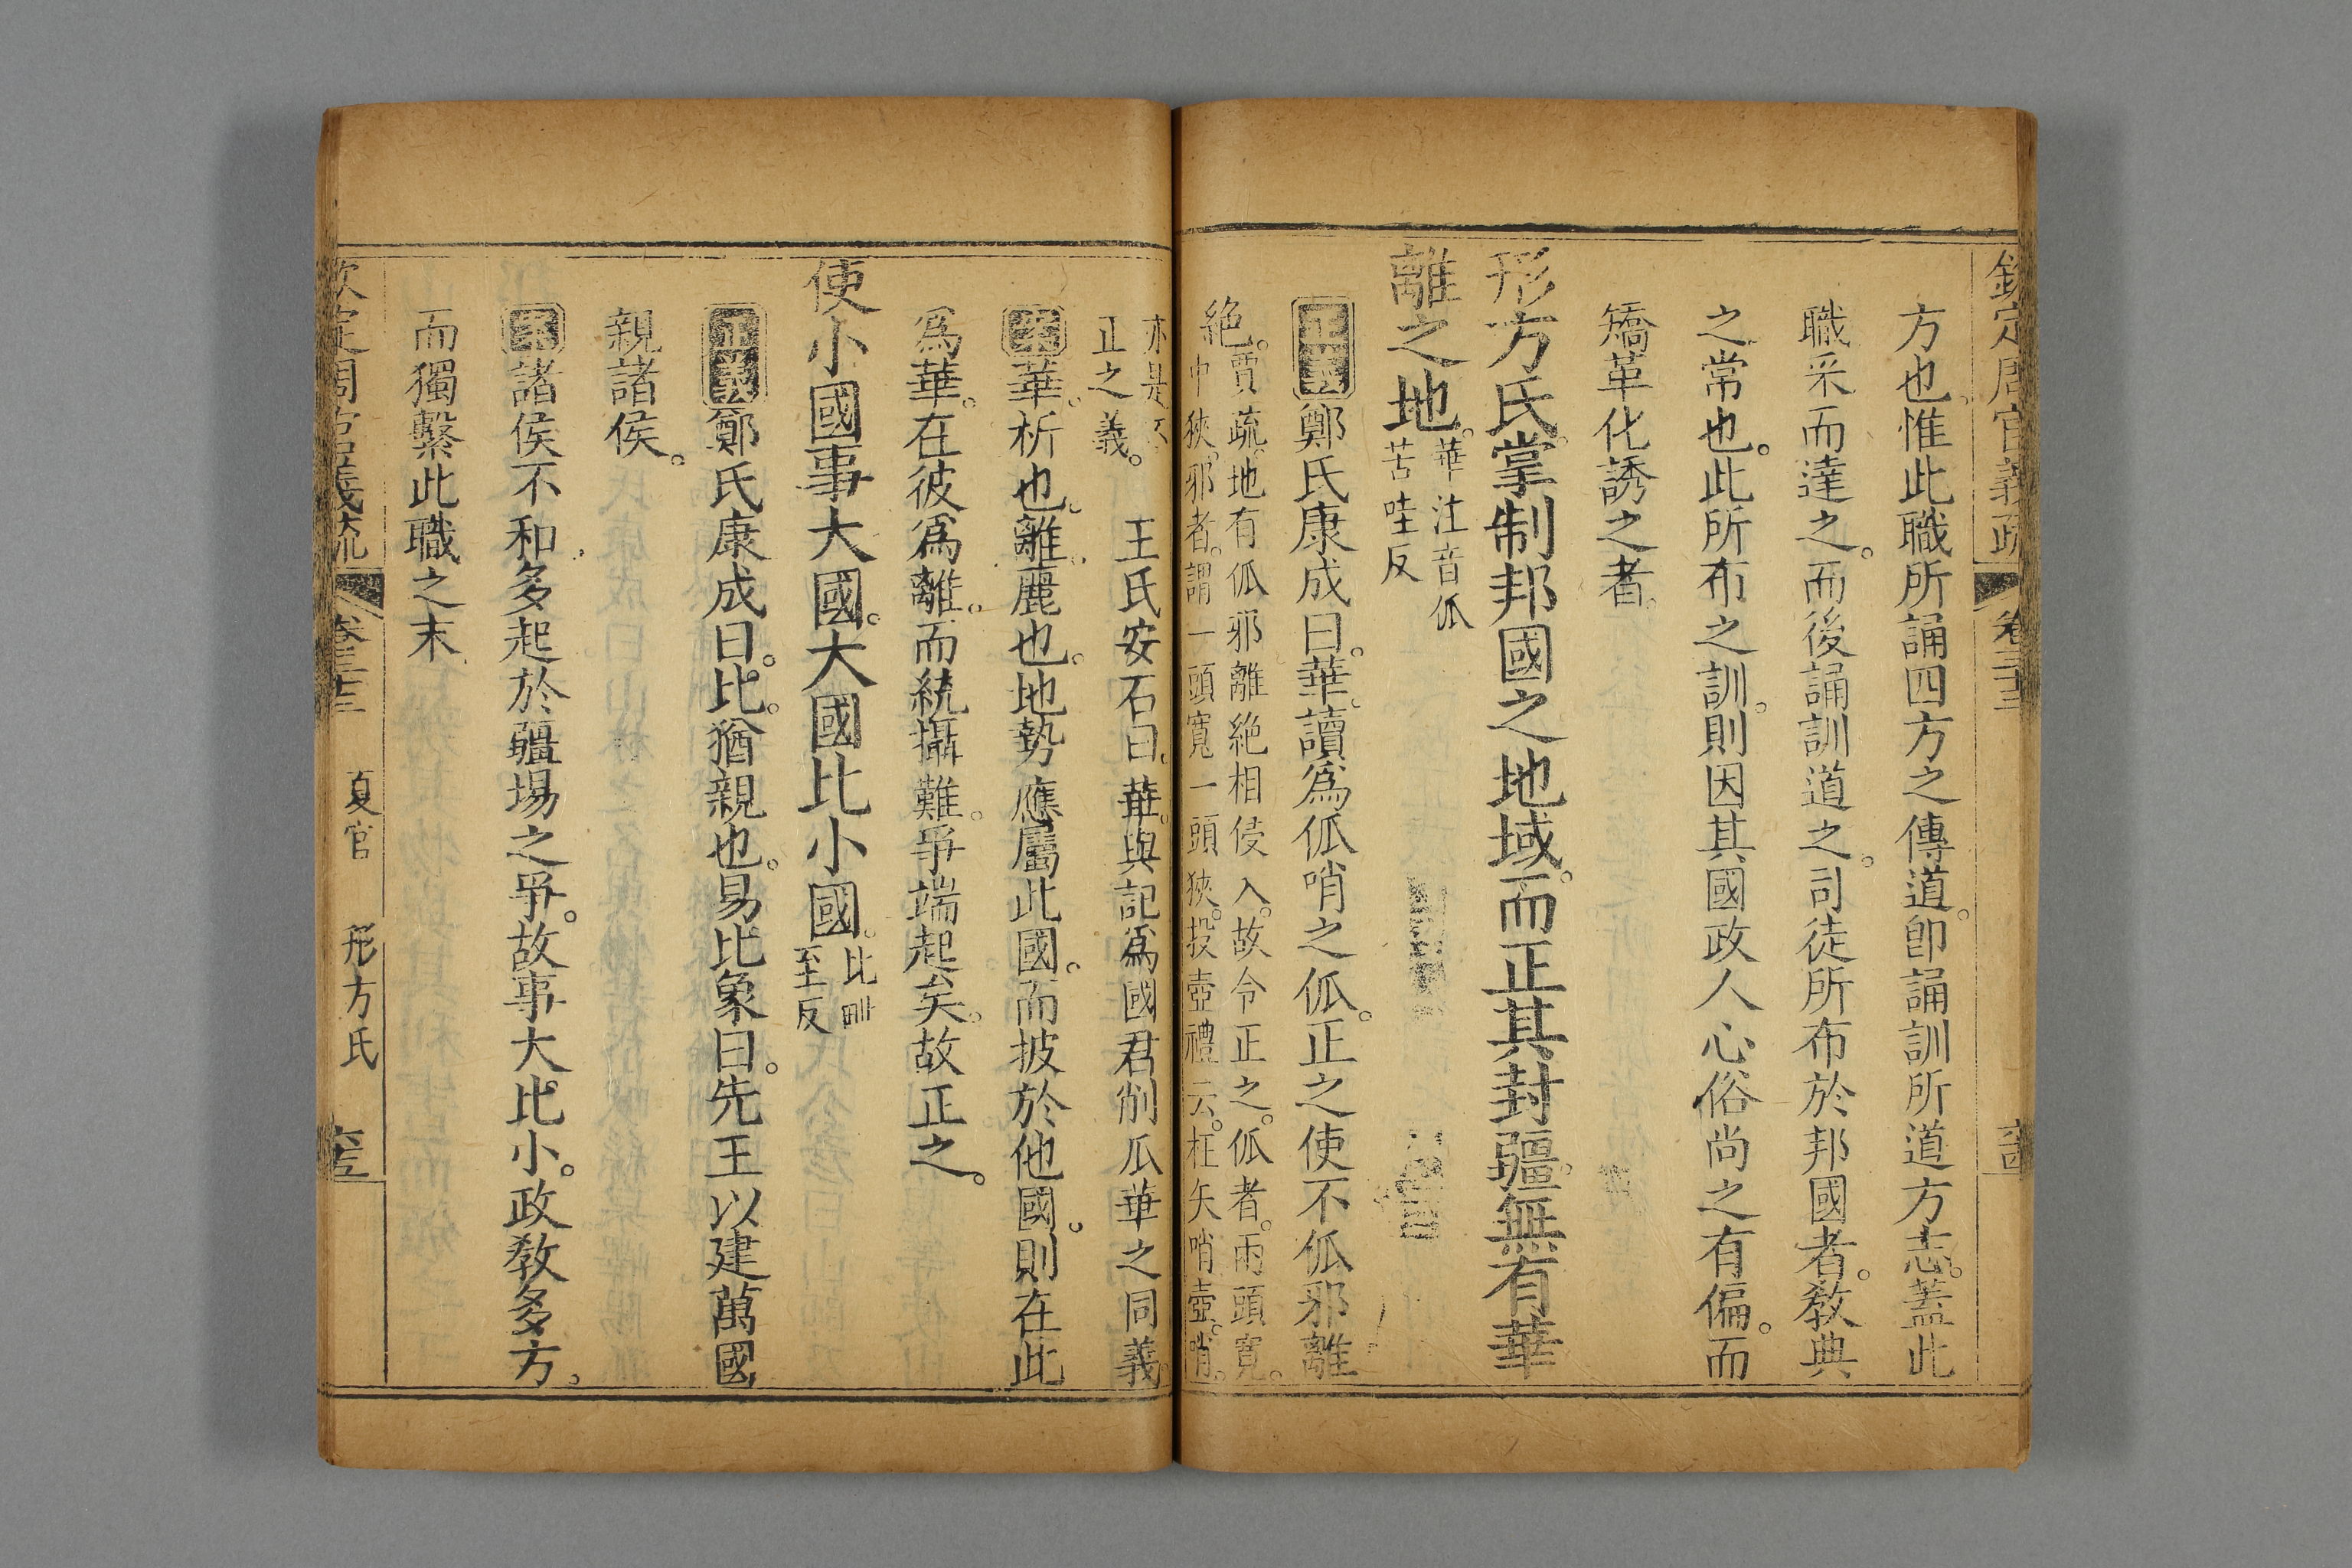 欽定周官義疏 卷三十三
方也惟此職所誦四方之傳道即誦訓所道方志蓋此
職采而達之而後誦訓道之司徒所布於邦國者教典
之常也此所布之訓則因其國政人心俗尚之有偏而
矯革化誘之者
形方氏掌制邦國之地域而正其封疆無有華
離之地
華注音㐽
苦哇反
正義鄭氏康成曰華讀爲㐽哨之㐽正之使不㐽邪離
絶
賈疏地有㐽邪離絶相侵入故令正之㐽者兩頭寬
中狹邪者謂一頭寬一頭狹投壺禮云枉矢哨壺哨
亦是不
正之義
王氏安石曰華與記爲國君削瓜華之同義
華析也離麗也地勢應屬此國而披於他國則在此
爲華在彼爲離而統攝難爭端起矣故正之
使小國事大國大國比小國
比毗
至反
正義鄭氏康成曰比猶親也易比象曰先王以建萬國
親諸侯
諸侯不和多起於疆埸之爭故事大比小政教多方
而獨繫此職之末
欽定周官義疏 卷三十三 夏官 形方氏